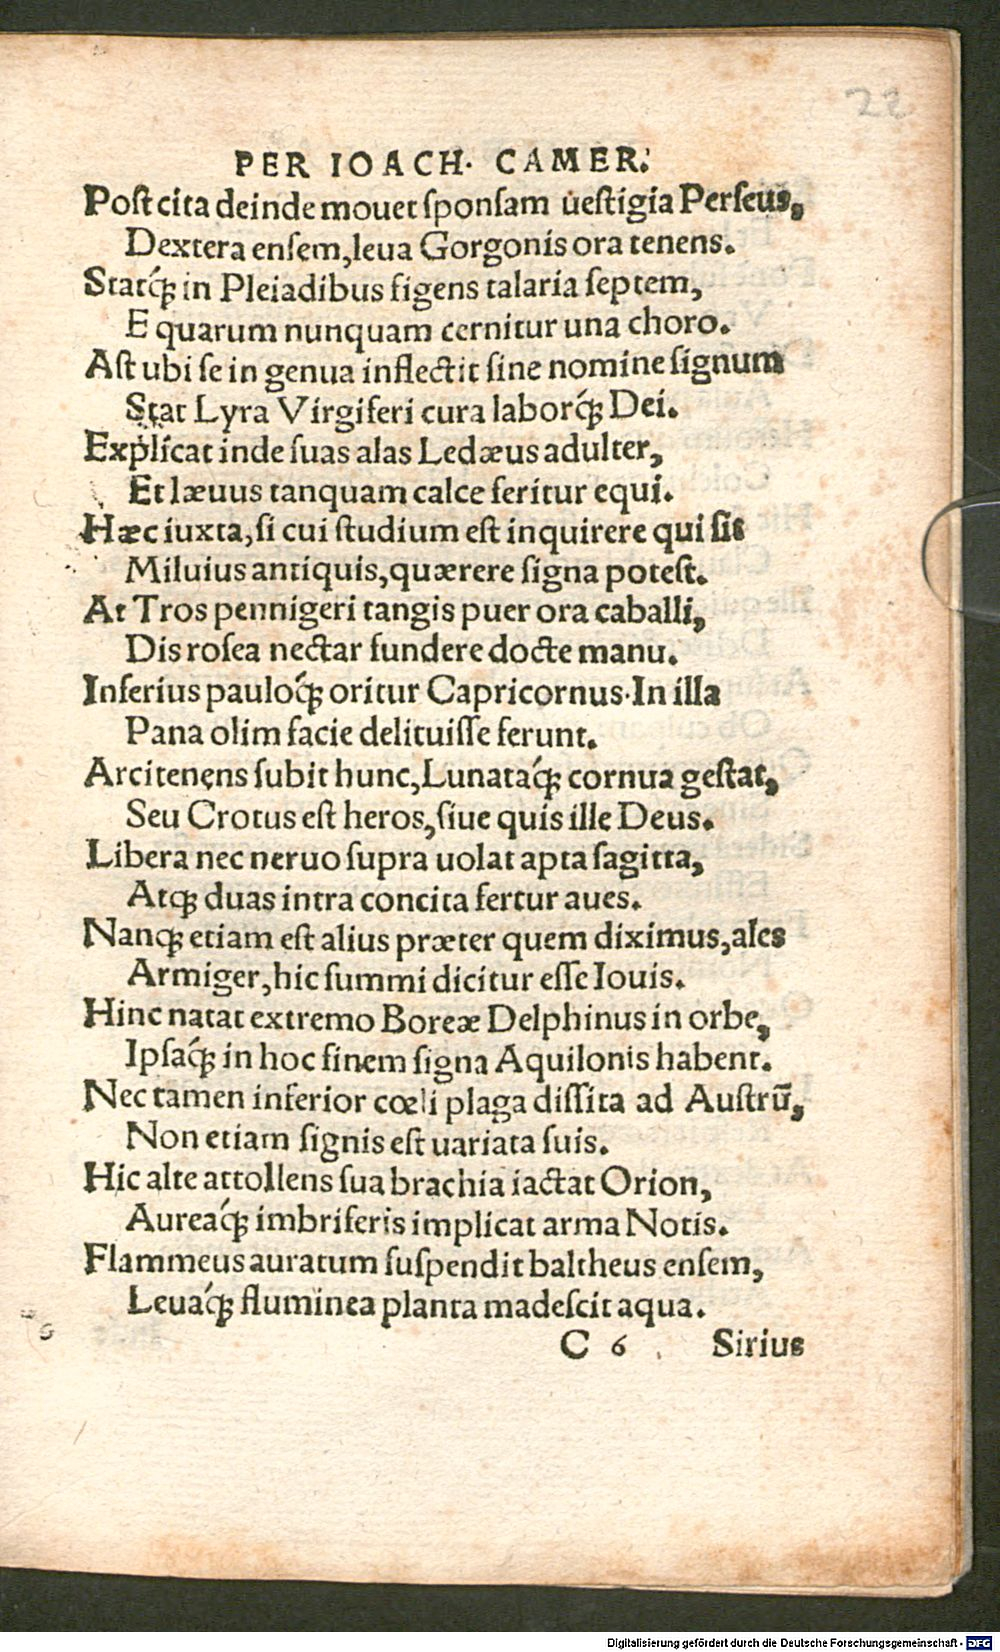 22
PER IOACH. CAMER.
Post cita deinde mouet sponsam uestigia Perseus,
Dextera ensem, leua Gorgonis ora tenens.
Statq́ꝫ in Pleiadibus figens talaria septem,
E quarum nunquam cernitur una choro.
Ast ubi se in genua inflectit sine nomine signum
Stat Lyra Virgiferi cura laborq́ꝫ Dei.
Explicat inde suas alas Ledæus adulter,
Et læuus tanquam calce feritur equi.
Hæc iuxta, si cui studium est inquirere qui sit
Miluius antiquis, quærere signa potest.
At Tros pennigeri tangis puer ora caballi,
Dis rosea nectar fundere docte manu.
Inferius pauloq́ꝫ oritur Capricornus. In illa
Pana olim facie delituisse ferunt.
Arcitenens subit hunc, Lunataq́ꝫ cornua gestat,
Seu Crotus est heros, siue quis ille Deus.
Libera nec neruo supra uolat apta sagitta,
Atqꝫ duas intra concita fertur aues.
Nanqꝫ etiam est alius præter quem diximus, ales
Armiger, hic summi dicitur esse Iouis.
Hinc natat extremo Boreæ Delphinus in orbe,
Ipsaq́ꝫ in hoc finem signa Aquilonis habent.
Nec tamen inferior cœli plaga dissita ad Austrū,
Non etiam signis est uariata suis.
Hic alte attollens sua brachia iactat Orion,
Aureaq́ꝫ imbriferis implicat arma Notis.
Flammeus auratum suspendit baltheus ensem,
Leuaq́ꝫ fluminea planta madescit aqua.
C 6 Sirius
Digitalisierung gefördert durch die Deutsche Forschungsgemeinschaft - DFG